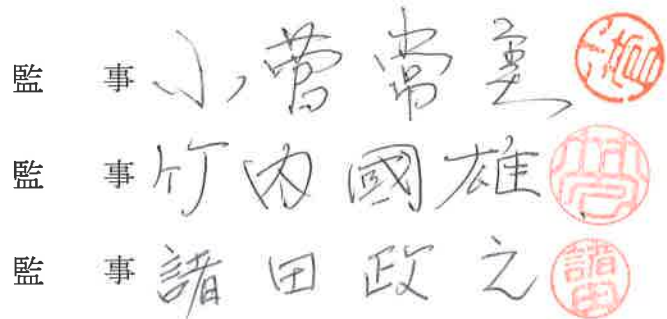 監 事 小菅常美
監 事 竹内國雄
監 事 諸田政之
諸田